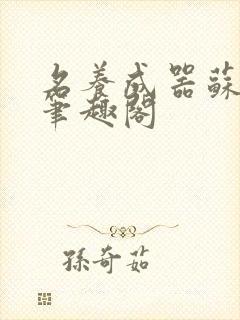 名養成器蘇
筆趣閣
孫奇茹